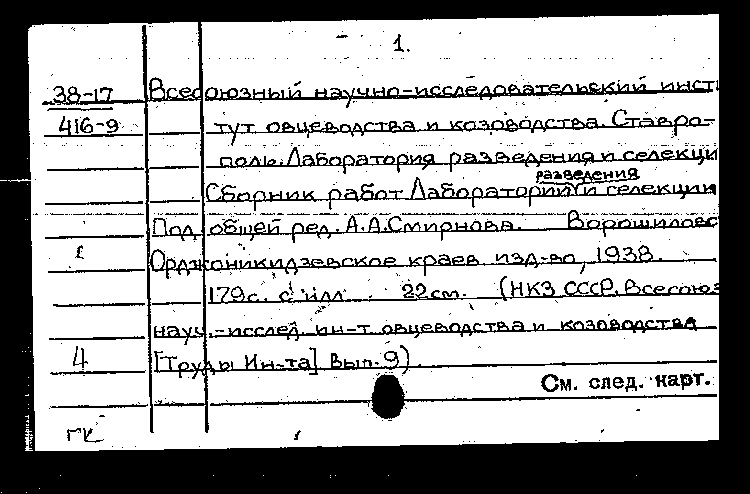 1.
38-17 Всесоюзный научно-исследовательский инсти
416-9 тут овцеводства и козоводства. Ставро-
поль. Лаборатория разведения и селекци
разведения
Сборник работ Лаборатории и селекции
Под общей ред. А.А.Смирнова. Ворошиловс
1 Орджоникидзевское краев. изд-во, 1938.
179с. с илл. 22см. (НКЗ СССР. Всесоюз
науч.-исслед. ин-т овцеводства и козоводства
4 [Труды Ин-та] Вып. 9).
См. след. карт.
ГК